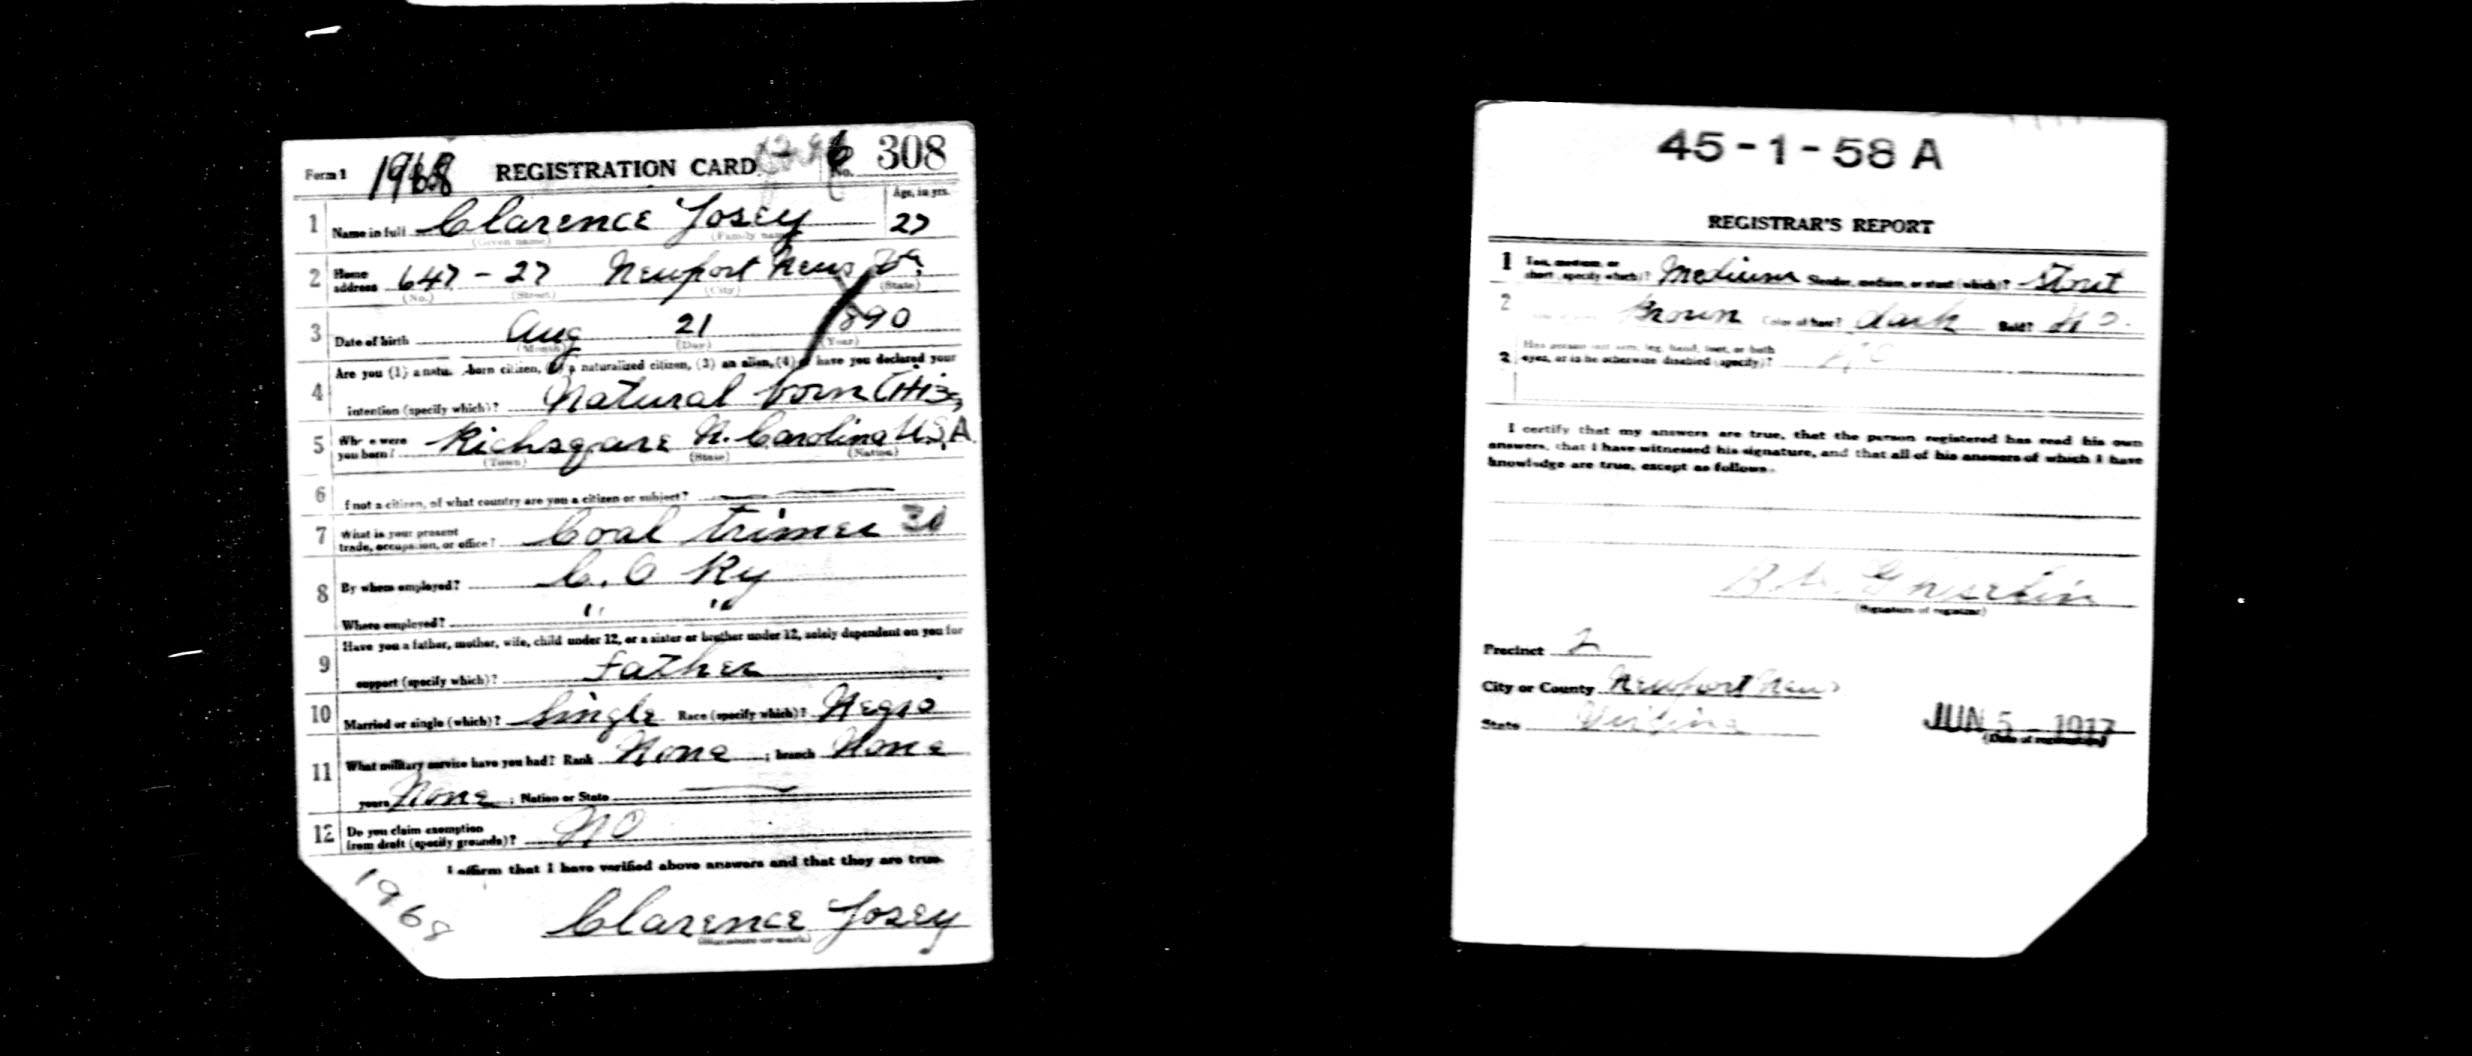 Form 1 1968 REGISTRATION CARD No. 308
Age, in yrs.
1 Name in full Clarence Josey 27
(Given name) (Family name)
2 Home address 647 - 27 Newport News Va.
(No.) (Street) (City) (State)
3 Date of birth Aug 21 1890
(Month) (Day) (Year)
Are you (1) a natu born citizen, (2) a naturalized citizen, (3) an alien, (4) or have you declared your
4 intention (specify which)? Natural born Citiz
5 Wh e were you born? Richsquare N. Carolina U.S.A.
(Town) (State) (Nation)
6 f not a citizen, of what country are you a citizen or subject?
7 What is your present trade, occupation, or office? Coal trimer 30
8 By whom employed? C. O Ry
Where employed? " "
Have you a father, mother, wife, child under 12, or a sister or brother under 12, solely dependent on you for
9 support (specify which)? Father
10 Married or single (which)? Single Race (specify which)? Negro
11 What military service have you had? Rank None ; branch None
years None ; Nation or State
12 Do you claim exemption from draft (specify grounds)? No
I affirm that I have verified above answers and that they are true.
1968
Clarence Josey
(Signature or mark)
45-1-58 A
REGISTRAR'S REPORT
1 Tall, medium, or short (specify which)? Medium Slender, medium, or stout (which)? Stout
2 Brown Color of hair? dark Bald? No.
3 Has person lost arm, leg, hand, foot, or both eyes, or is he otherwise disabled (specify)? No
I certify that my answers are true, that the person registered has read his own
answers, that I have witnessed his signature, and that all of his answers of which I have
knowledge are true, except as follows:
(Signature of registrar)
Precinct 2
City or County Newport News
State Virginia
JUN 5 - 1917
(Date of registration)